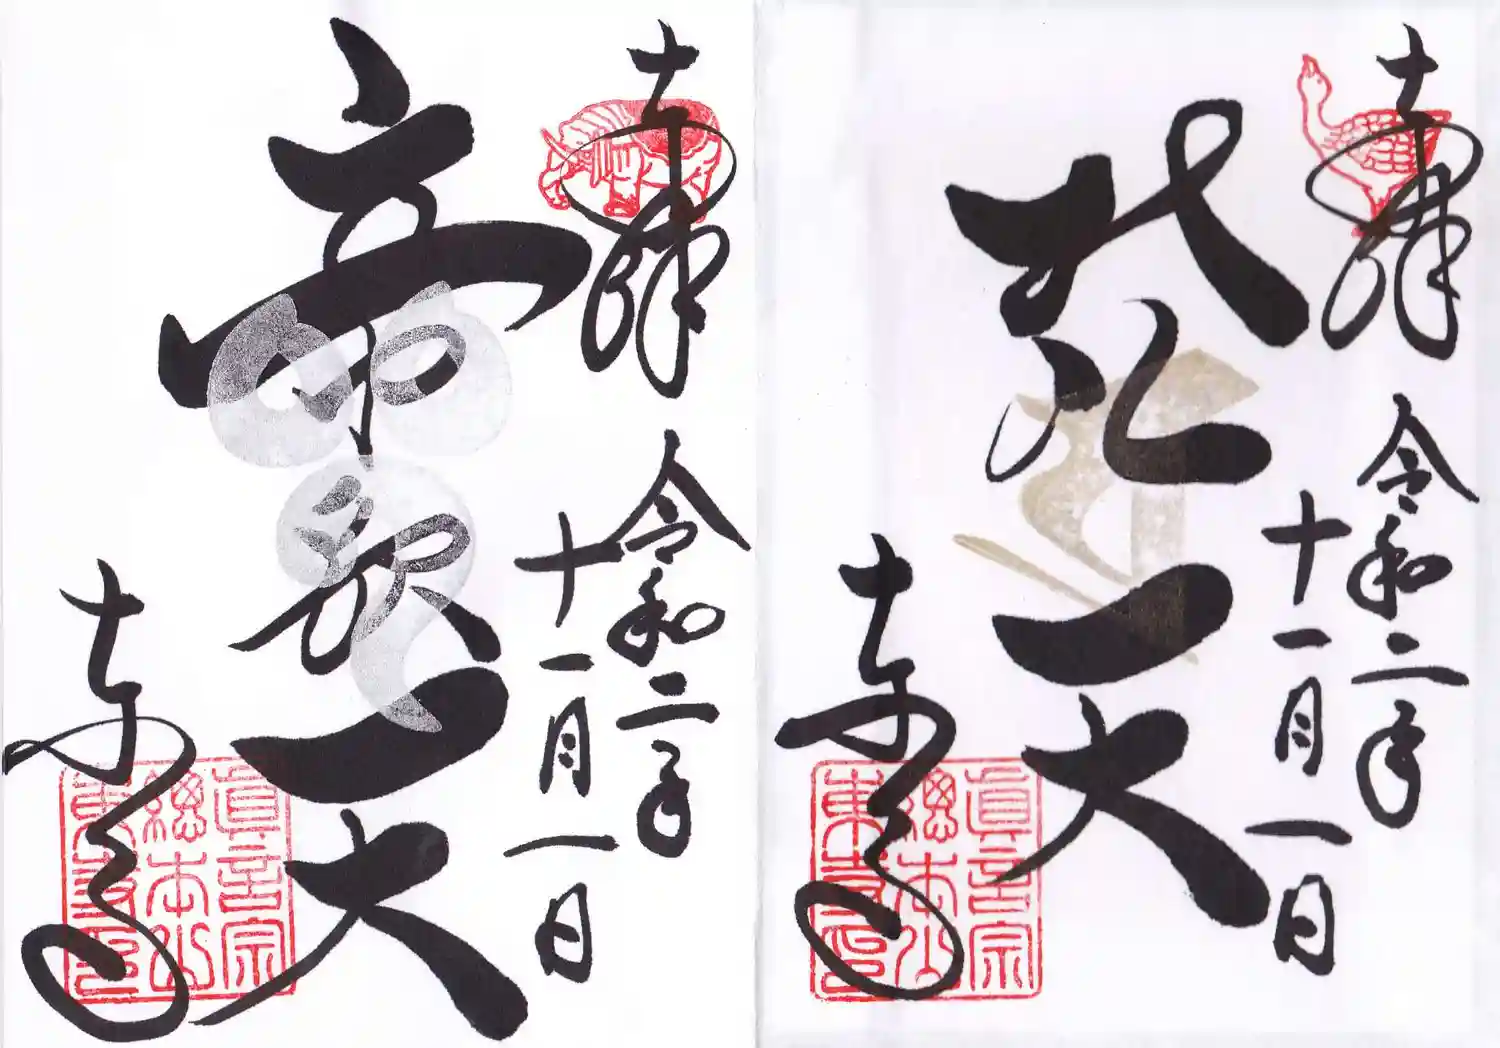 奉拝
令和二年
十一月一日
梵天
東寺
眞言宗
總本山
東寺印
奉拝
令和二年
十一月一日
帝釈天
東寺
眞言宗
總本山
東寺印